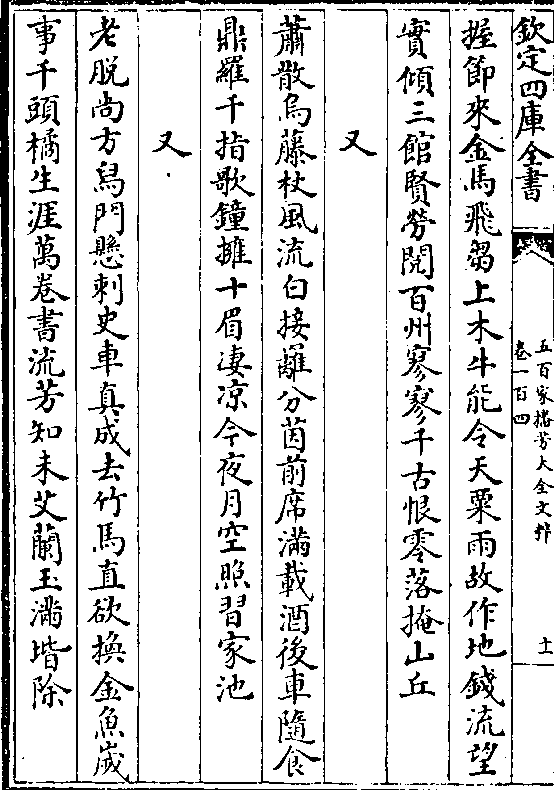 欽定四庫全書
五百家播芳大全文粹
卷一百四
十一
握節來金馬飛芻上木牛能令天粟雨故作地錢流望
實傾三館賢勞閱百州寥寥千古恨零落掩山丘
又
蕭散烏藤杖風流白接䍦分茵前席滿載酒後車隨食
鼎羅千指歌鐘擁十眉凄凉今夜月空照習家池
又
老脫尚方舄門懸刺史車真成去竹馬直欲換金魚歲
事千頭橘生涯萬卷書流芳知未艾蘭玉滿堦除